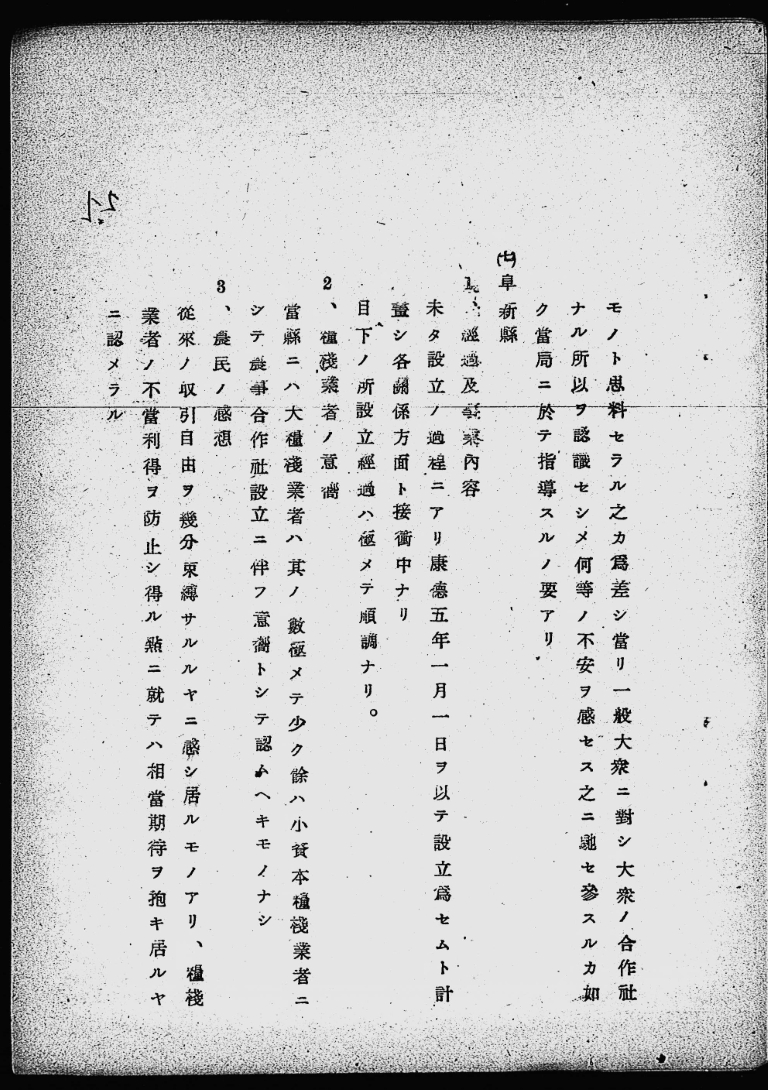 モノト思料セラル之カ爲差シ當リ一般大衆ニ對シ大衆ノ合作社
ナル所以ヲ認識セシメ何等ノ不安ヲ感セス之ニ馳セ參スルカ如
ク當局ニ於テ指導スルノ要アリ
(七)阜新縣
1、經過及事業內容
未タ設立ノ過程ニアリ康德五年一月一日ヲ以テ設立爲セムト計
畫シ各關係方面ト接衝中ナリ
目下ノ所設立經過ハ極メテ順調ナリ。
2、糧棧業者ノ意嚮
當縣ニハ大糧棧業者ハ其ノ數極メテ少ク餘ハ小資本糧棧業者ニ
シテ農事合作社設立ニ伴フ意嚮トシテ認ムヘキモノナシ
3、農民ノ感想
從來ノ収引自由ヲ幾分束縛サルルヤニ感シ居ルモノアリ、糧棧
業者ノ不當利得ヲ防止シ得ル點ニ就テハ相當期待ヲ抱キ居ルヤ
ニ認メラル